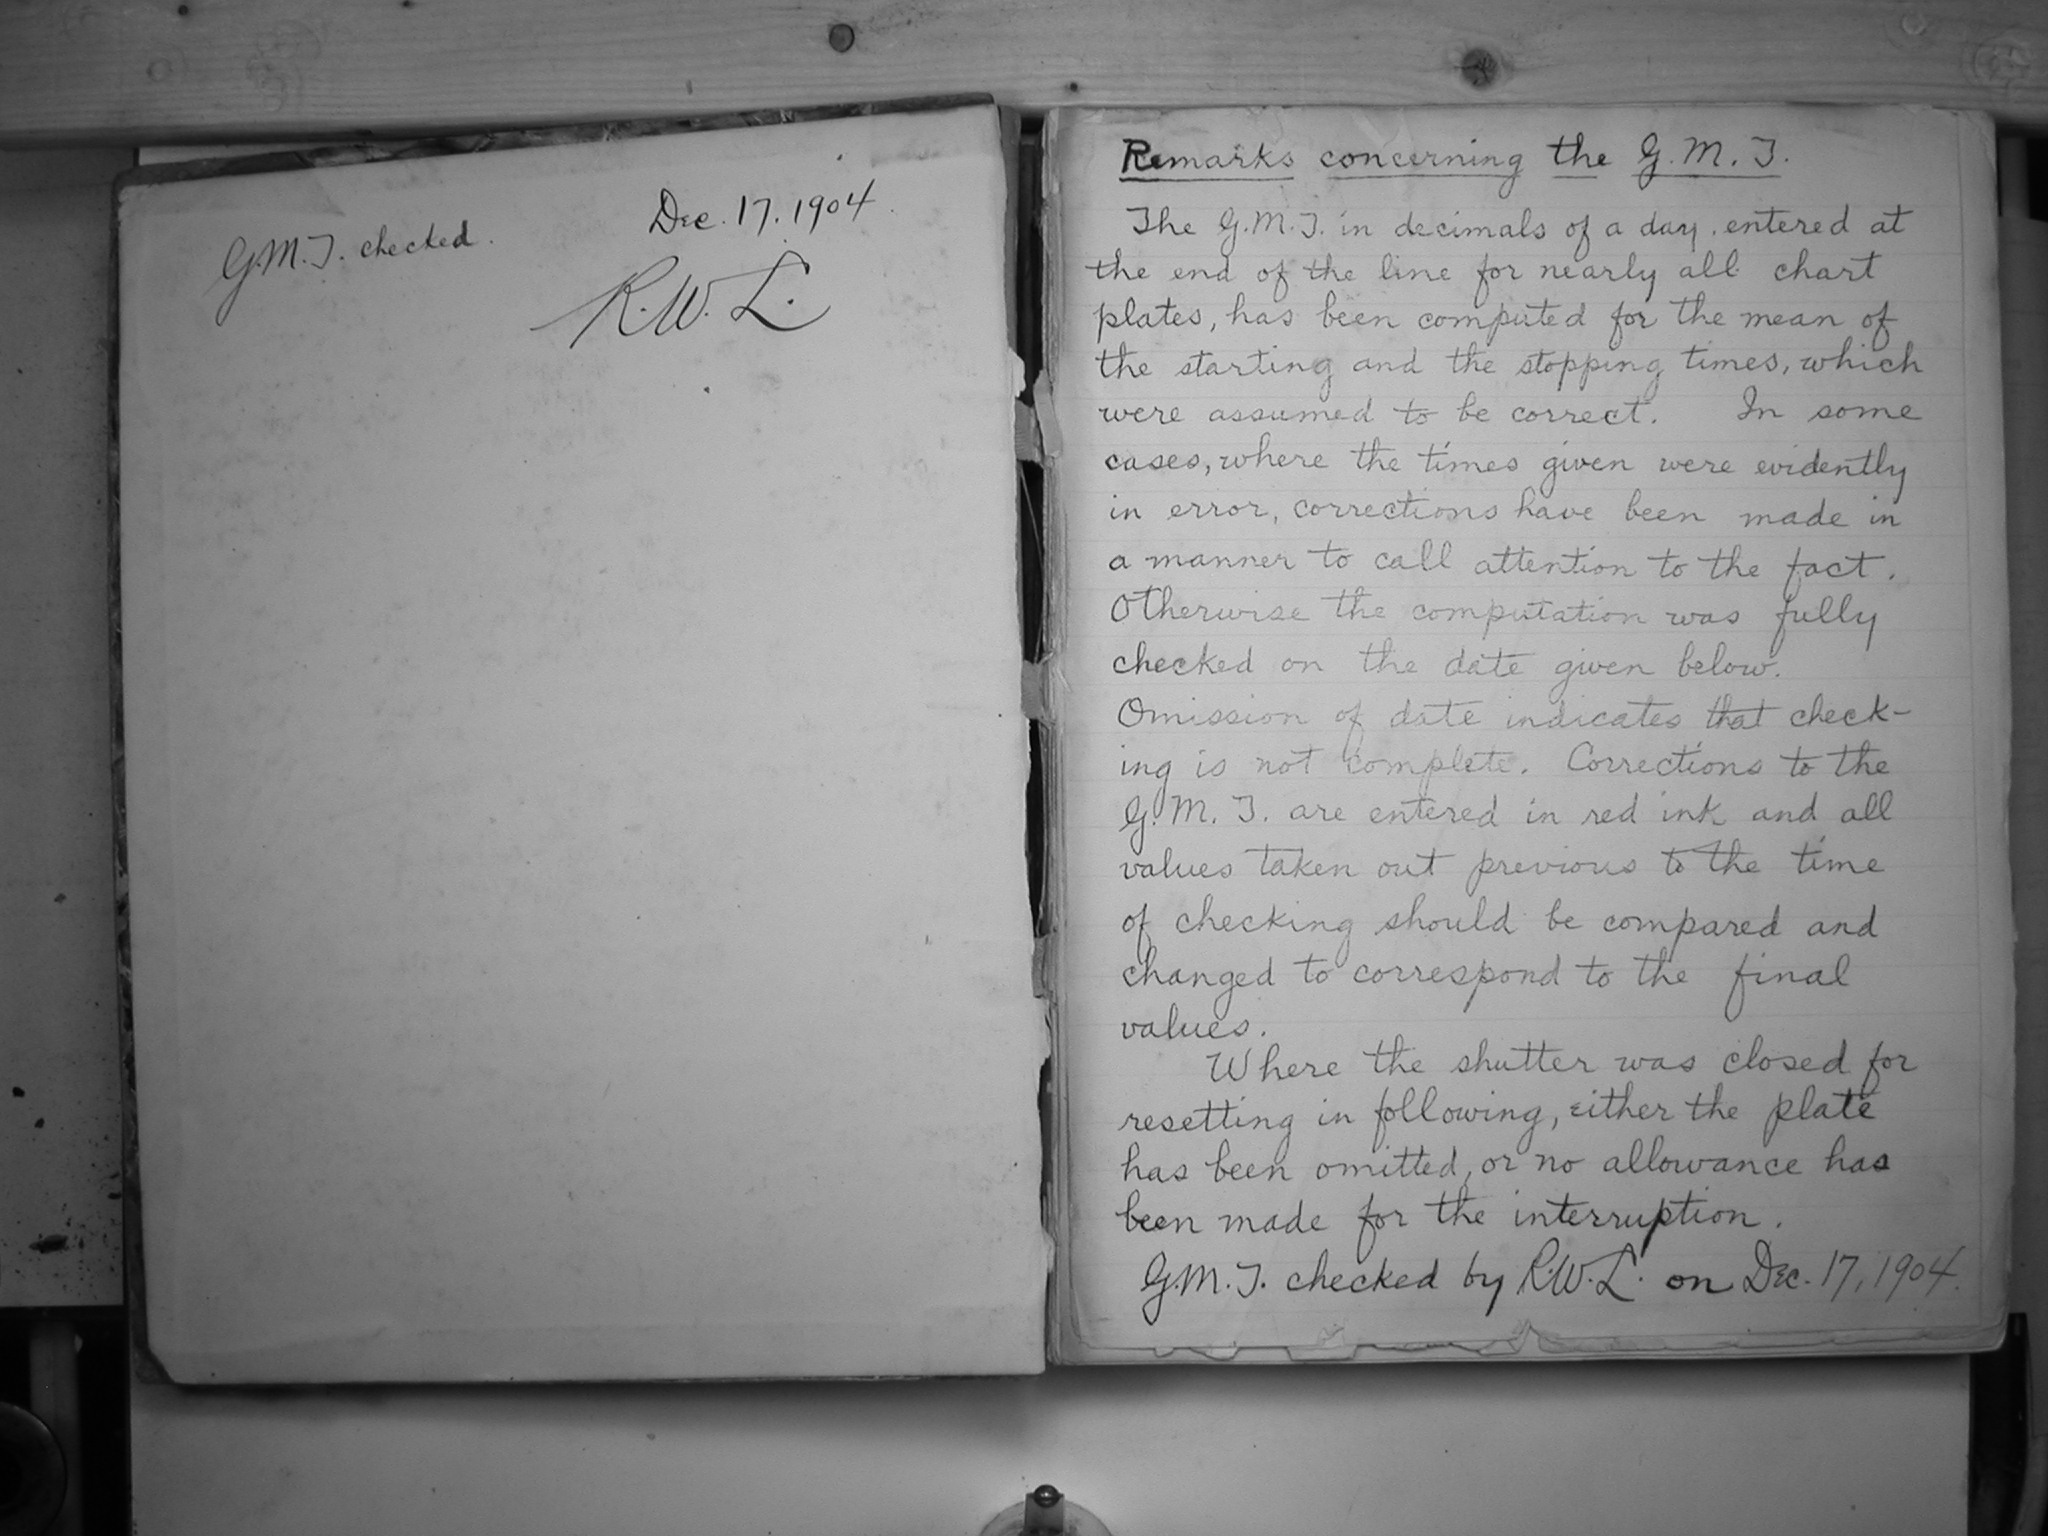 Dec. 17. 1904.
G.M.T. checked.
R.W.L.
Remarks concerning the G.M.T.
The G.M.T. in decimals of a day, entered at
the end of the line for nearly all chart
plates, has been computed for the mean of
the starting and the stopping times, which
were assumed to be correct. In some
cases, where the times given were evidently
in error, corrections have been made in
a manner to call attention to the fact.
Otherwise the computation was fully
checked on the date given below.
Omission of date indicates that check-
ing is not complete. Corrections to the
G.M.T. are entered in red ink and all
values taken out previous to the time
of checking should be compared and
changed to correspond to the final
values.
Where the shutter was closed for
resetting in following, either the plate
has been omitted, or no allowance has
been made for the interruption.
G.M.T. checked by R.W.L. on Dec. 17, 1904.